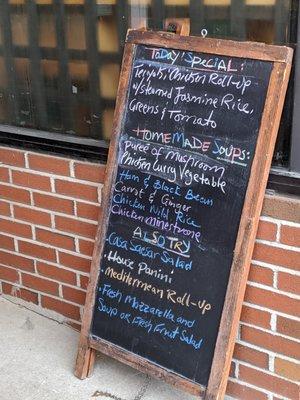 Today Special:
Teriyaki Chicken Roll-Up
w/Steamed Jasmine Rice,
Greens & Tomato
HOMEMADE SOUPS:
Puree of Mushroom
Chicken Curry Vegetable
Ham & Black Bean
Carrot & Ginger
Chicken Wild Rice
Chicken Minestrone
ALSO TRY
Cobb Caesar Salad
House Panini
Mediterranean Roll-Up
Fresh Mozzarella and
Soup or Fresh Fruit Salad